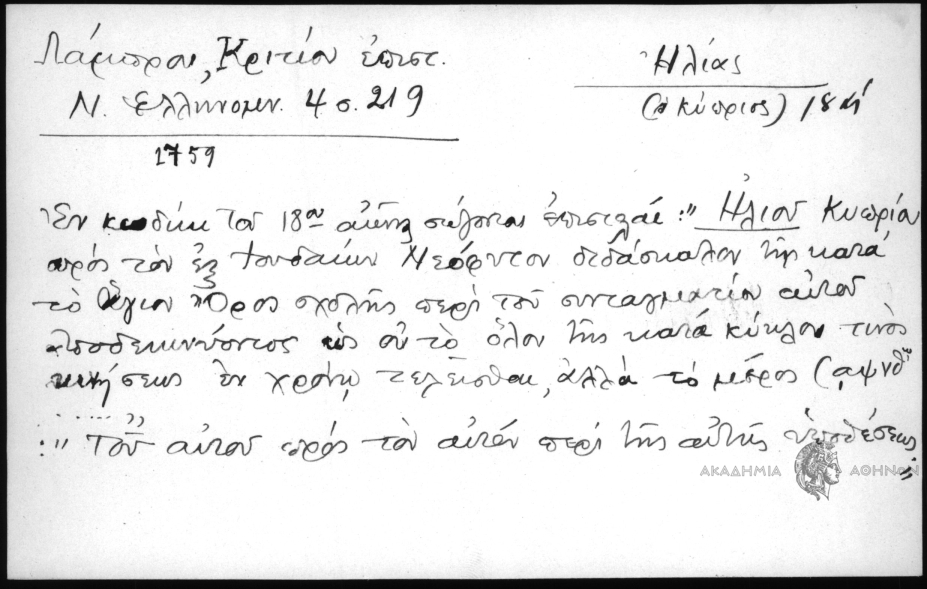 Λάμπρου, Κριτίου ἐπιστ.
Ν. Ἑλληνομν. 4 σ. 219
1759
Ἠλίας
(ὁ Κύπριος) 18
Ἐν κώδικι τοῦ 18ου αἰῶνος σώζονται ἐπιστολαί :" Ἠλιοῦ Κυπρίου
πρὸς τὸν ἐξ Ἰουδαίων Νεόφυτον διδάσκαλον τῆς κατὰ
τὸ Ἅγιον Ὄρος σχολῆς περὶ τοῦ συνταγματίου αὐτοῦ
ἀποδεικνύοντος ὡς οὐ τὸ ὅλον τῆς κατὰ κύκλον τινὸς
κινήσεως ἐν χρόνῳ τελεῖσθαι, ἀλλὰ τὸ μέρος (͵αψνθ
....."
:" Τοῦ αὐτοῦ πρὸς τὸν αὐτὸν περὶ τῆς αὐτῆς ὑποθέσεως"
ΑΚΑΔΗΜΙΑ ΑΘΗΝΩΝ